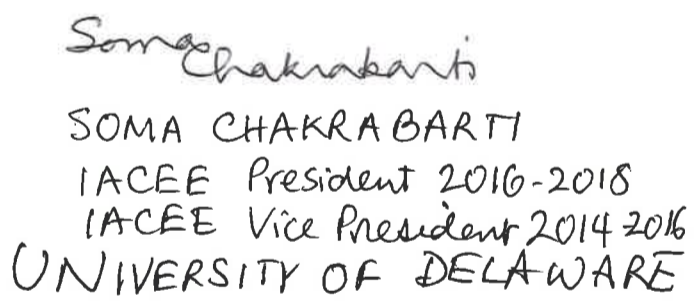 Soma Chakrabarti
SOMA CHAKRABARTI
IACEE President 2016-2018
IACEE Vice President 2014 2016
UNIVERSITY OF DELAWARE